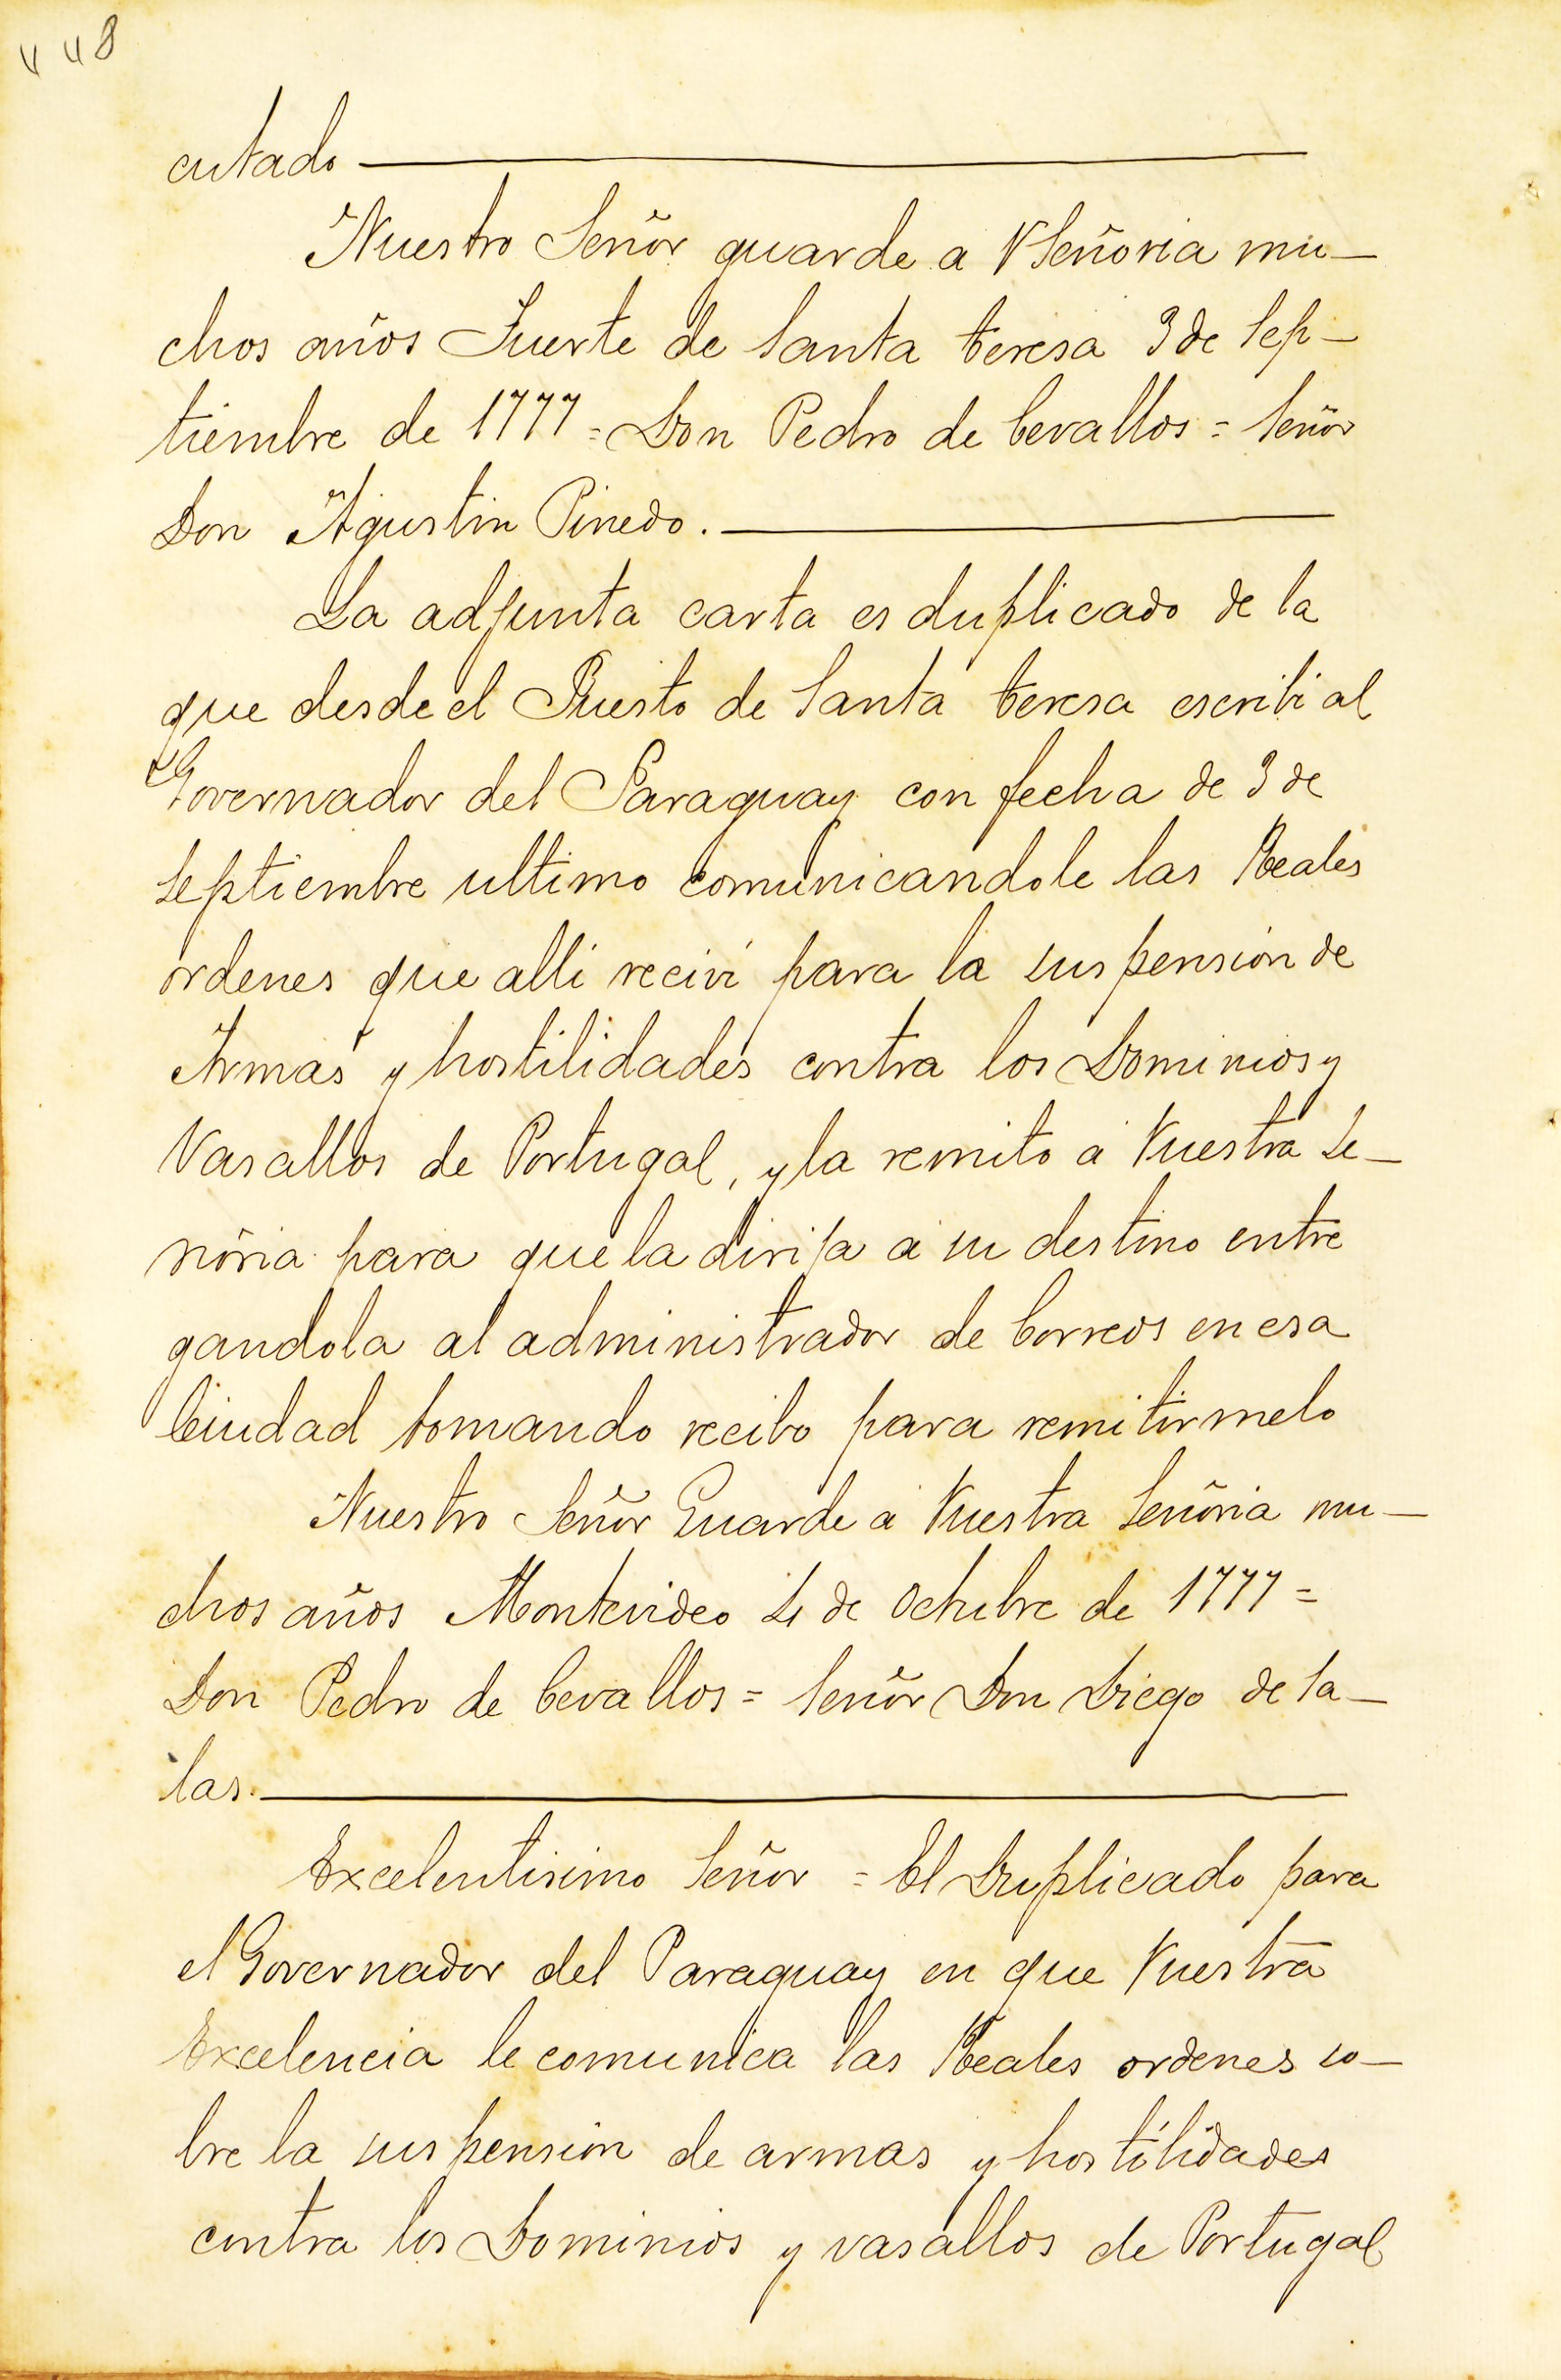 448
cutado
Nuestro Señor guarde a VSeñoria mu-
chos años Fuerte de Santa teresa 3 de Sep-
tiembre de 1777 = Don Pedro de Cevallos = Señor
Don Agustin Pinedo.
La adjunta carta es duplicado de la
que desde el Puesto de Santa teresa escribi al
Governador del Paraguay con fecha de 3 de
Septiembre ultimo comunicandole las Reales
ordenes que alli recivi para la suspension de
Armas y hostilidades contra los Dominios y
Vasallos de Portugal, y la remito a Vuestra Se-
ñoria para que la dirija a su destino entre
gandola al administrador de Correos en esa
Ciudad tomando recibo para remitirmelo
Nuestro Señor Guarde a Vuestra Señoria mu-
chos años Montevideo 4 de Octubre de 1777 =
Don Pedro de Cevallos = Señor Don Diego de Sa-
las.
Excelentisimo Señor = El Duplicado para
el Governador del Paraguay en que Vuestra
Excelencia le comunica las Reales ordenes so-
bre la suspension de armas y hostilidades
contra los Dominios y vasallos de Portugal